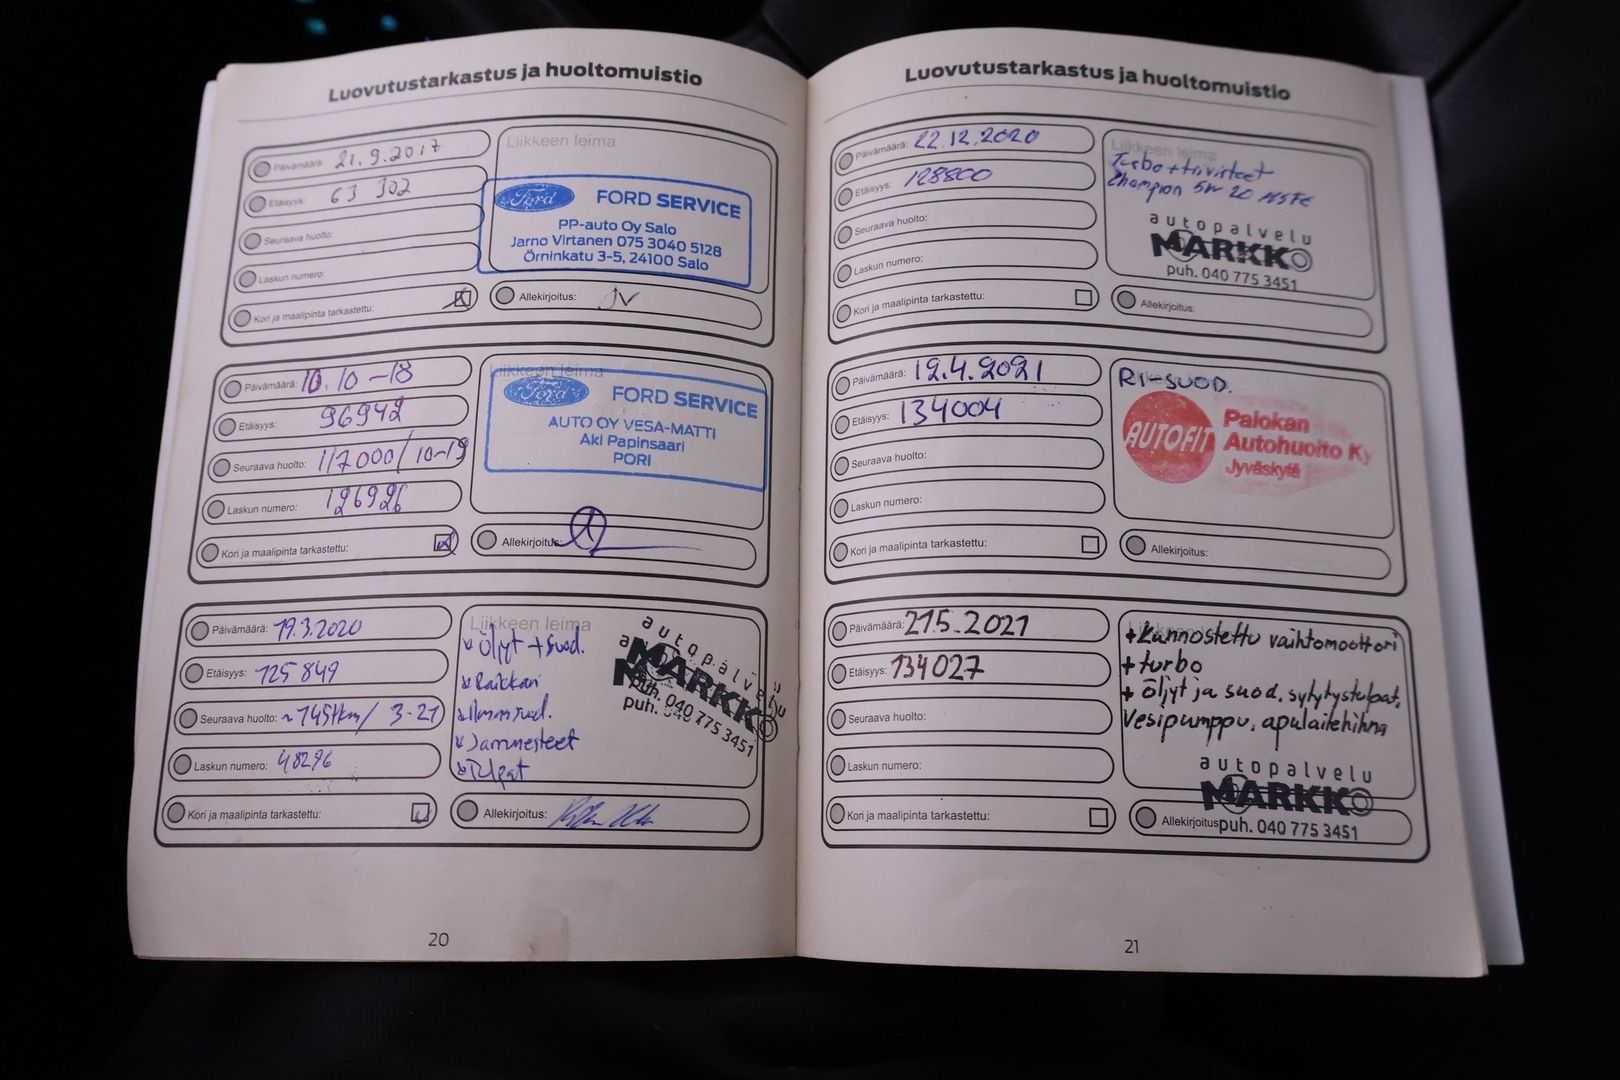 Luovutustarkastus ja huoltomuistio
Päivämäärä: 21.9.2017
Etäisyys: 63 302
Seuraava huolto:
Laskun numero:
Kori ja maalipinta tarkastettu:
Liikkeen leima
Ford FORD SERVICE
PP-auto Oy Salo
Jarno Virtanen 075 3040 5128
Örninkatu 3-5, 24100 Salo
Allekirjoitus: JV
Päivämäärä: 10.10-18
Etäisyys: 96942
Seuraava huolto: 117000/10-19
Laskun numero: 126926
Kori ja maalipinta tarkastettu:
Liikkeen leima
Ford FORD SERVICE
AUTO OY VESA-MATTI
Aki Papinsaari
PORI
Allekirjoitus:
Päivämäärä: 19.3.2020
Etäisyys: 125 849
Seuraava huolto: ~145tkm/ 3-21
Laskun numero: 48296
Kori ja maalipinta tarkastettu:
Liikkeen leima
Öljyt + suod.
Raikkari
Ilmansuod.
Jarrunesteet
Tulpat
autopalvelu
MARKKO
puh. 040 775 3451
puh.
Allekirjoitus:
20
Luovutustarkastus ja huoltomuistio
Päivämäärä: 22.12.2020
Etäisyys: 128800
Seuraava huolto:
Laskun numero:
Kori ja maalipinta tarkastettu:
Liikkeen leima
Turbo + tiivisteet
Champion 5W 20 MSFE
autopalvelu
MARKKO
puh. 040 775 3451
Allekirjoitus:
Päivämäärä: 12.4.2021
Etäisyys: 134004
Seuraava huolto:
Laskun numero:
Kori ja maalipinta tarkastettu:
RI-SUOD.
AUTOFIT Palokan
Autohuolto Ky
Jyväskylä
Allekirjoitus:
Päivämäärä: 21.5.2021
Etäisyys: 134027
Seuraava huolto:
Laskun numero:
Kori ja maalipinta tarkastettu:
+ Kunnostettu vaihtomoottori
+ turbo
+ öljyt ja suod, sytytystulpat,
Vesipumppu, apulaitehihna
autopalvelu
MARKKO
Allekirjoitus puh. 040 775 3451
21